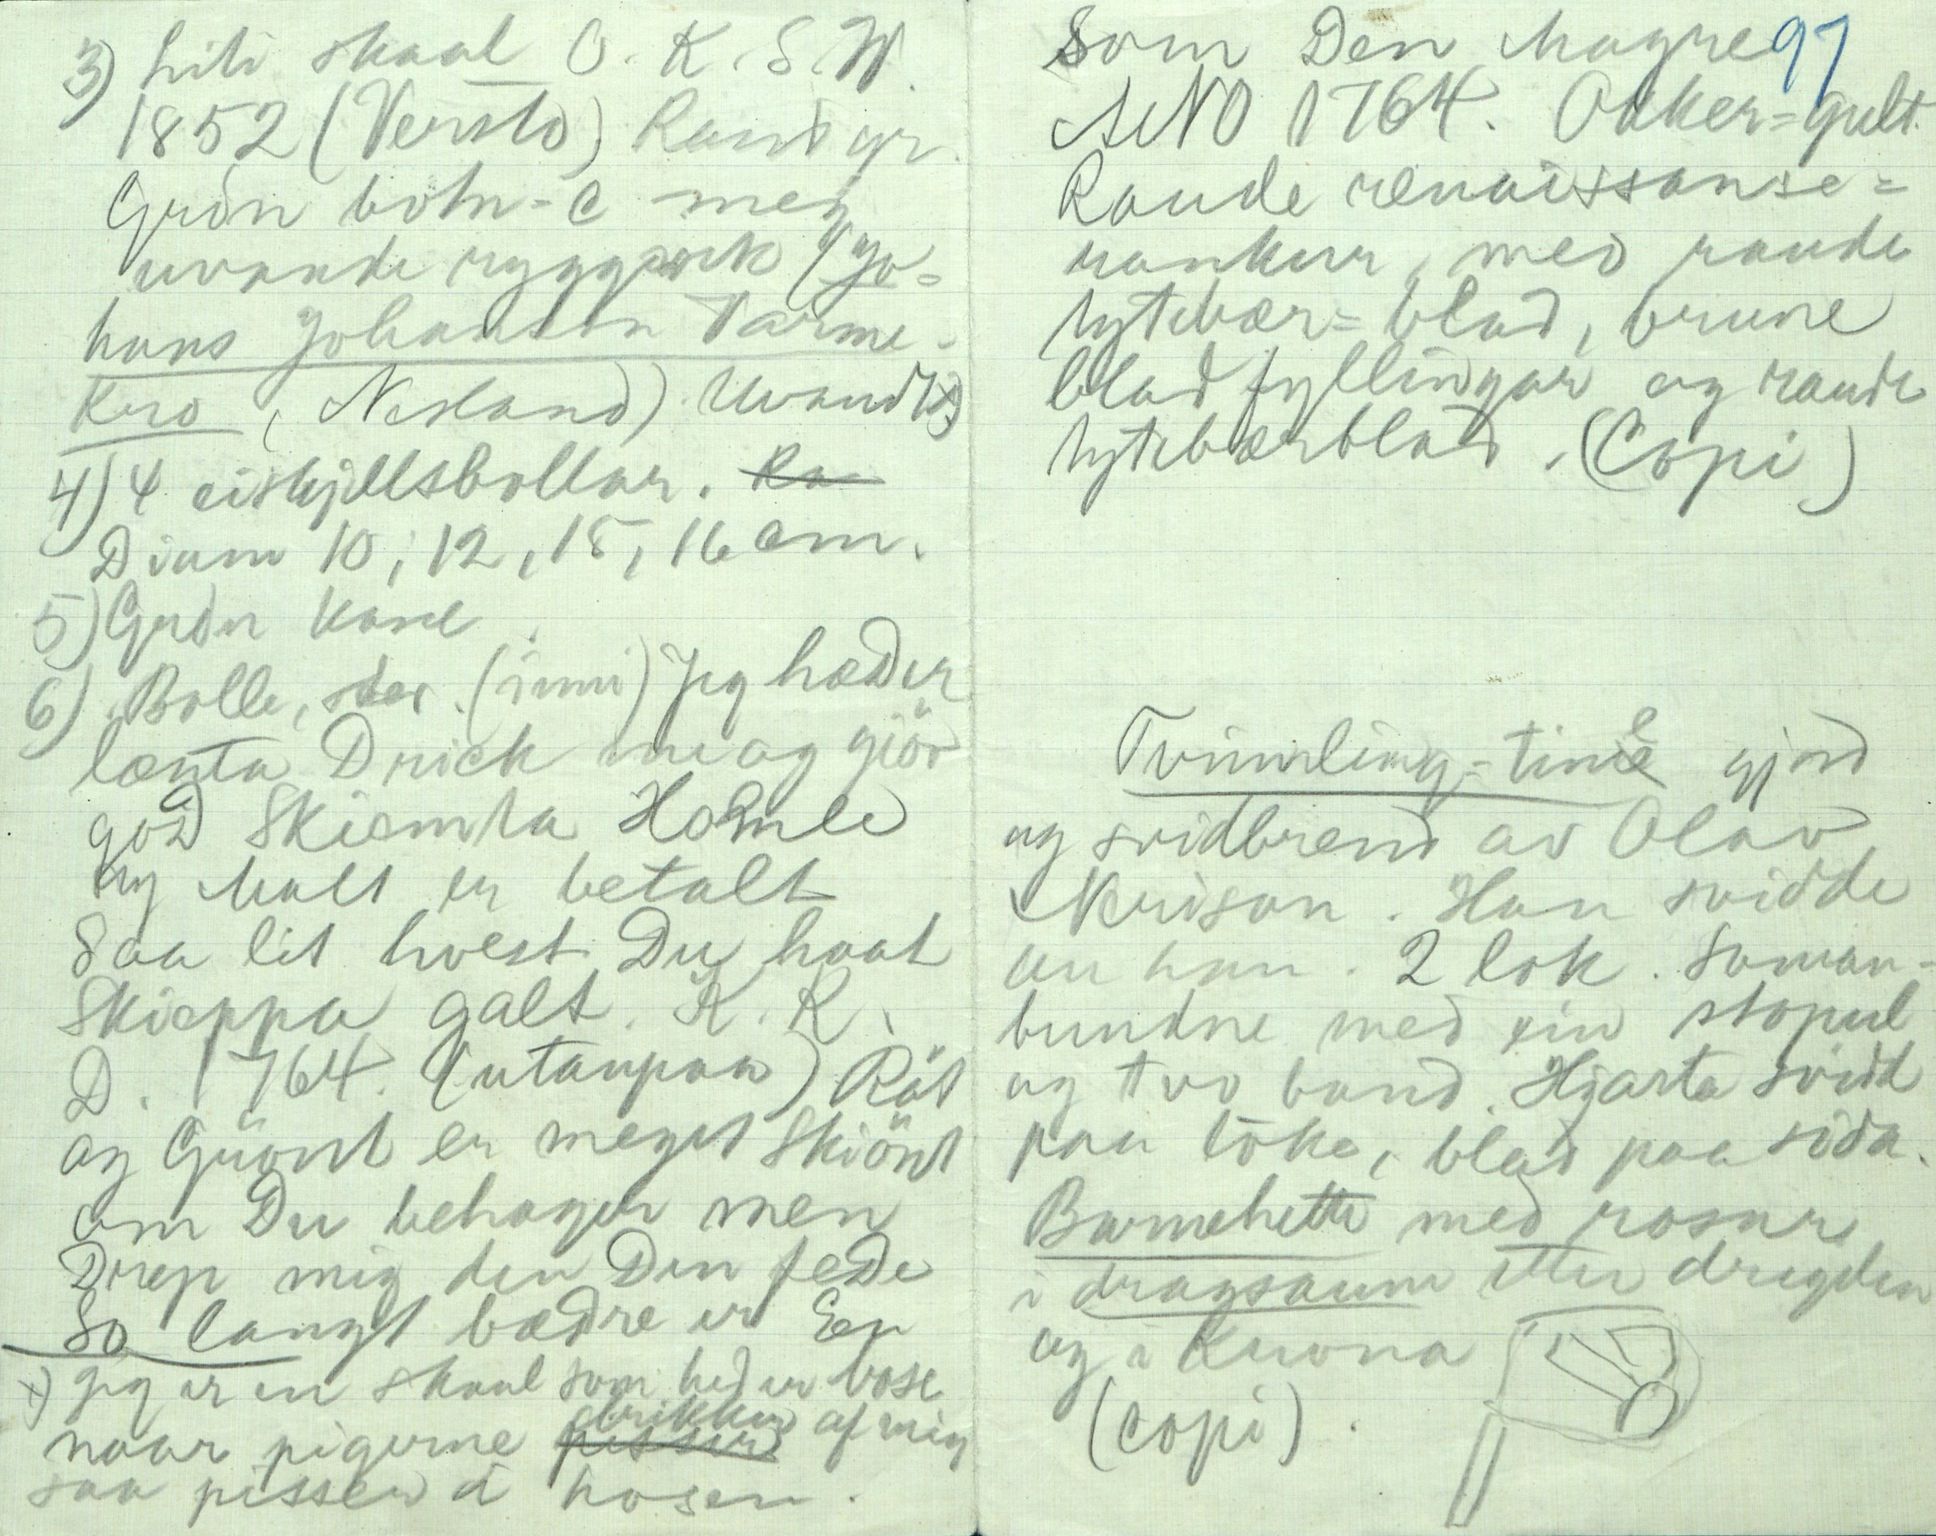 3) Liti skaal O. K. S. W.
1852 (Verstö) Rand gr.
Grön botn-c med
uvande ryggverk (Jo=
hans Johannson Tarme-
Kro, Nesland) Uvandt x)
4) 4 eiskjellsbollar. Ra
Diam 10, 12, 15, 16 cm.
5) Grön Kane.
6) Bolle, stor. (inni) Jeg hæder
lænta Drick me og giör
god Skiemta Homle
og Malt er betalt
Saa lit hvest Du haat
Skieppa galt. K. R.
D. 1764. (utanpaa) Röt
og Grönt er meget Skiönt
om Du behager men
Drep mig den Den fede
So langt bædre er Een
x) Jeg er en skaal som heder bose
naar pigerne pisser drikker af mig
saa pisser d hosen.
Som Den Magre 97
ANO 1764. Okker=gult.
Raude renaissanse=
rankur, med raude
tytebær=blad, brune
bladfyllingar og raude
tytebærblad. (Copi)
Tvinnling=tine gjord
og svidbrend av Olav
Nerison. Han svidde
an han. 2 lok. Saman-
bundne med ein stopul
og tvo band. Hjarta svidd
paa loke, blad paa sida.
Barnehette med rosur
i dragsaum etter dregilen
og i Kruna
(copi).